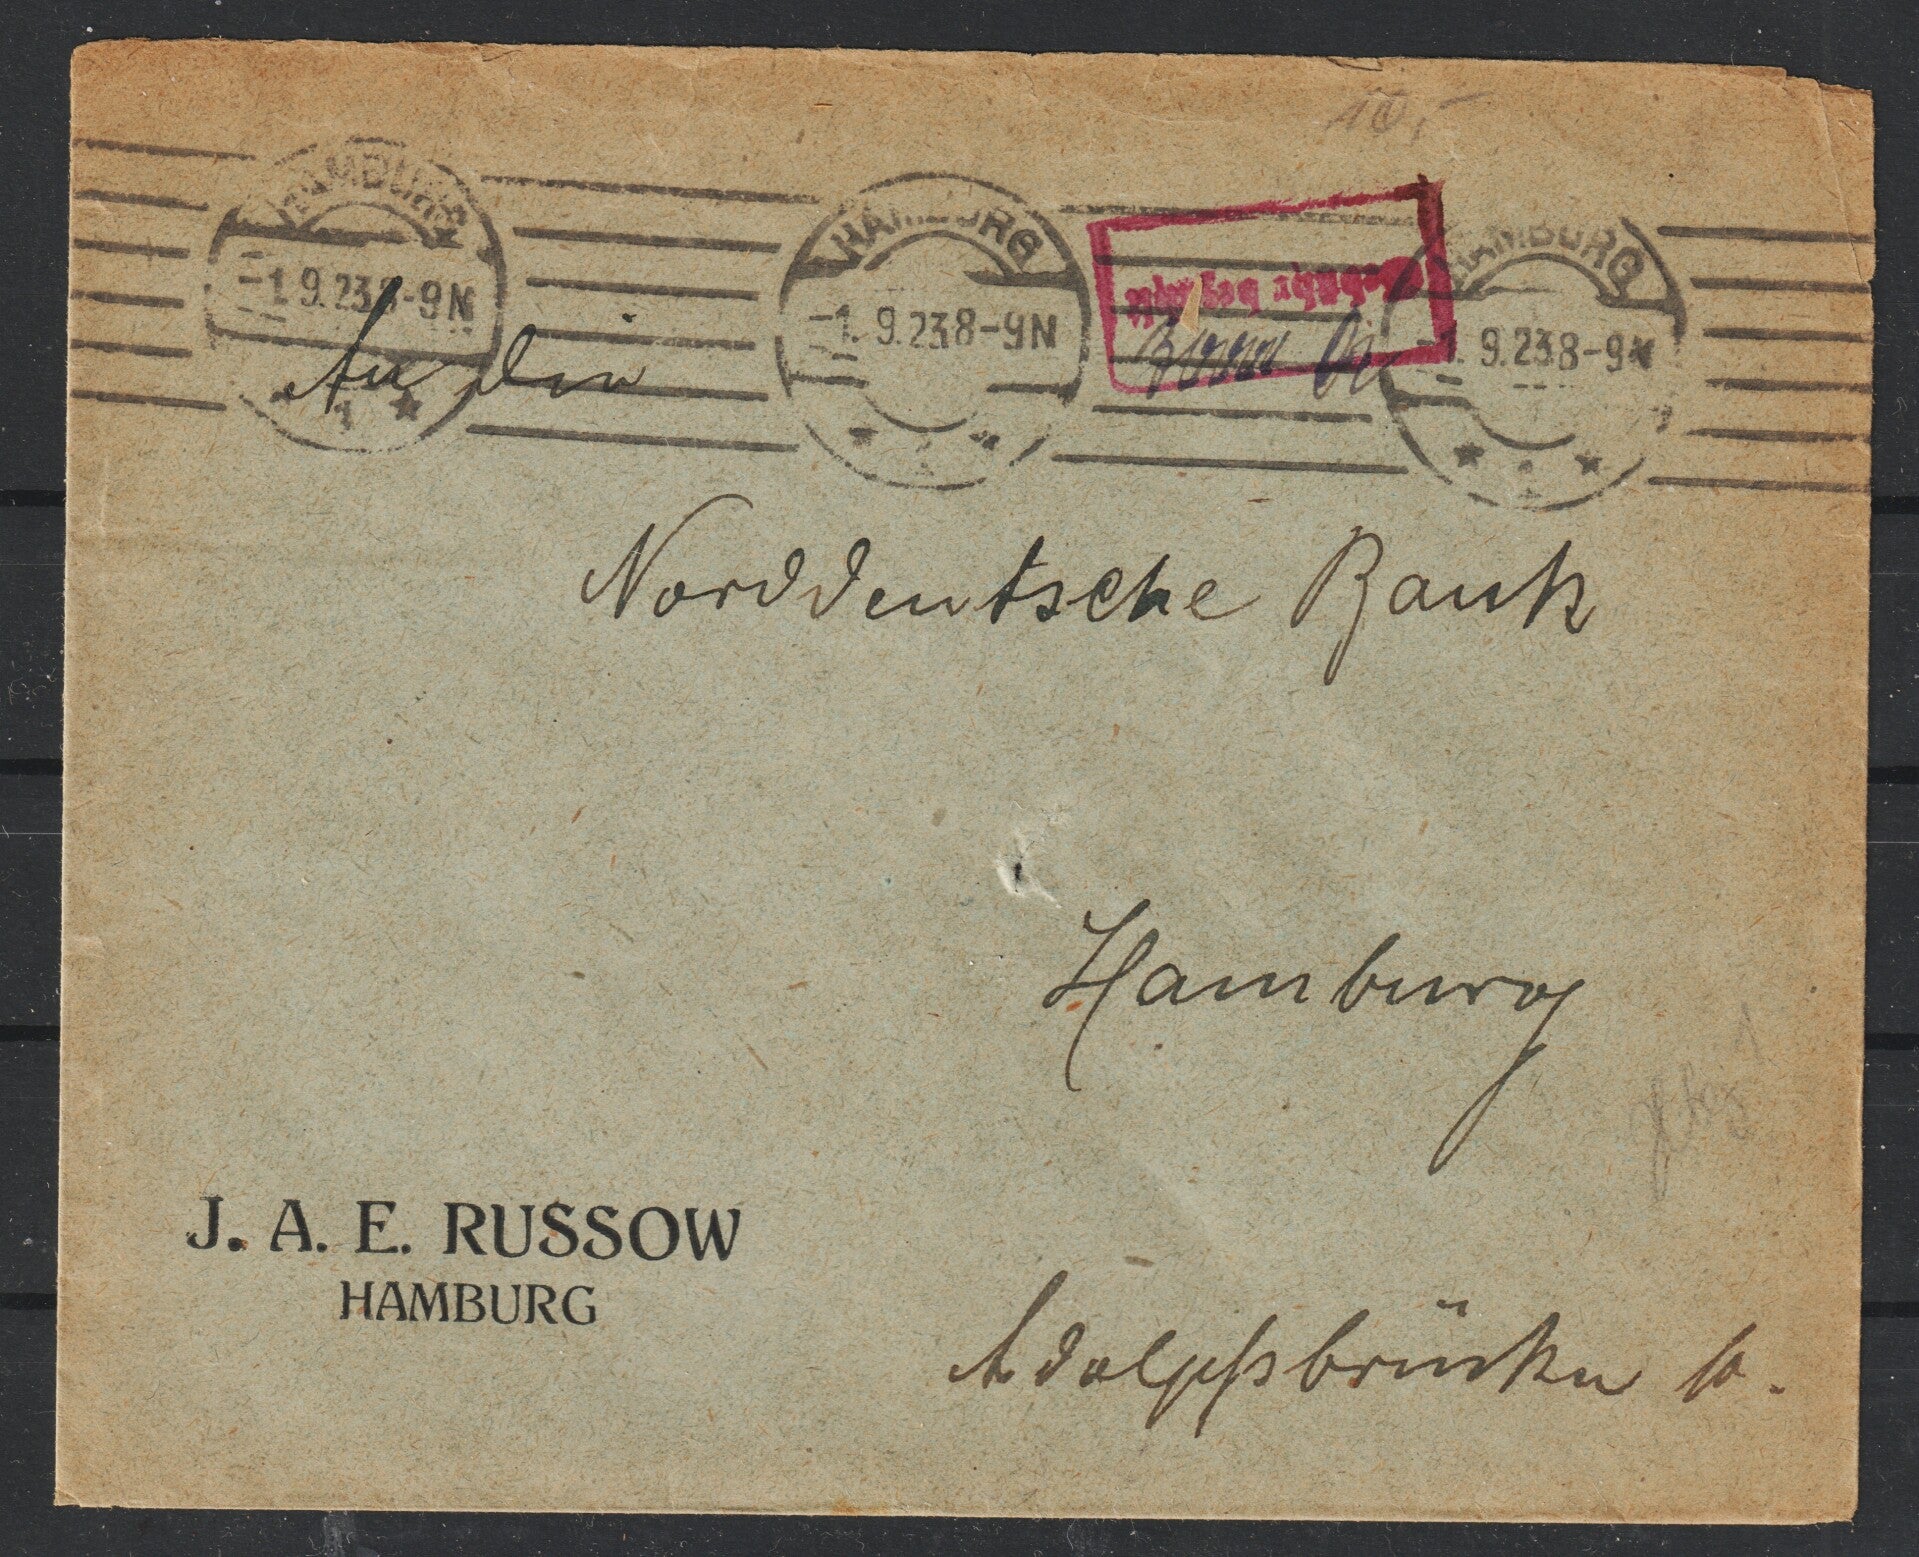 10,-
HAMBURG HAMBURG HAMBURG
-1.9.23 8-9N -1.9.23 8-9N -1.9.23 8-9N
1 1 1
Gebühr bezahlt
An die
Norddeutsche Bank
Hamburg
J. A. E. RUSSOW
HAMBURG
Adolphsbrücke 10.